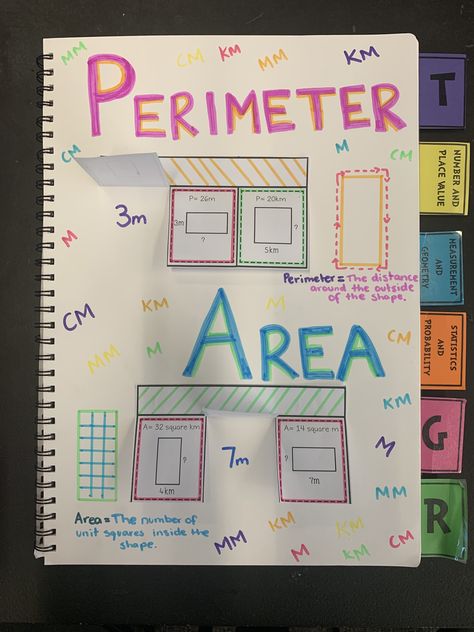 MM
CM
KM
MM
KM
PERIMETER
T
CM
M
CM
NUMBER AND
PLACE VALUE
3m
P= 26m
3m
?
P= 20km
?
5km
M
MEASUREMENT
AND
GEOMETRY
Perimeter= The distance
around the outside
of the shape.
CM
KM
M
STATISTICS
AND
PROBABILITY
AREA
MM
M
CM
KM
G
A= 32 square km
?
4km
7m
A= 14 square m
?
7m
M
MM
R
Area= The number of
unit squares inside the
shape.
KM
KM
MM
M
KM
CM